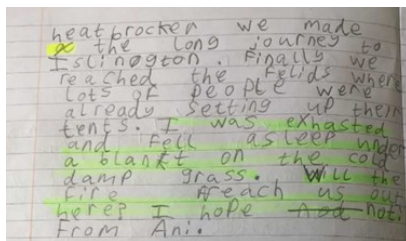 heatbrocker we made
the long journey to
Islinogton. Finally we
reached the felids where
lots of people were
already setting up their
tents. I was exhasted
and fell asleep under
a blankt on the cold
damp grass. Will the
fire reach us out
here? I hope not!
From Ani.